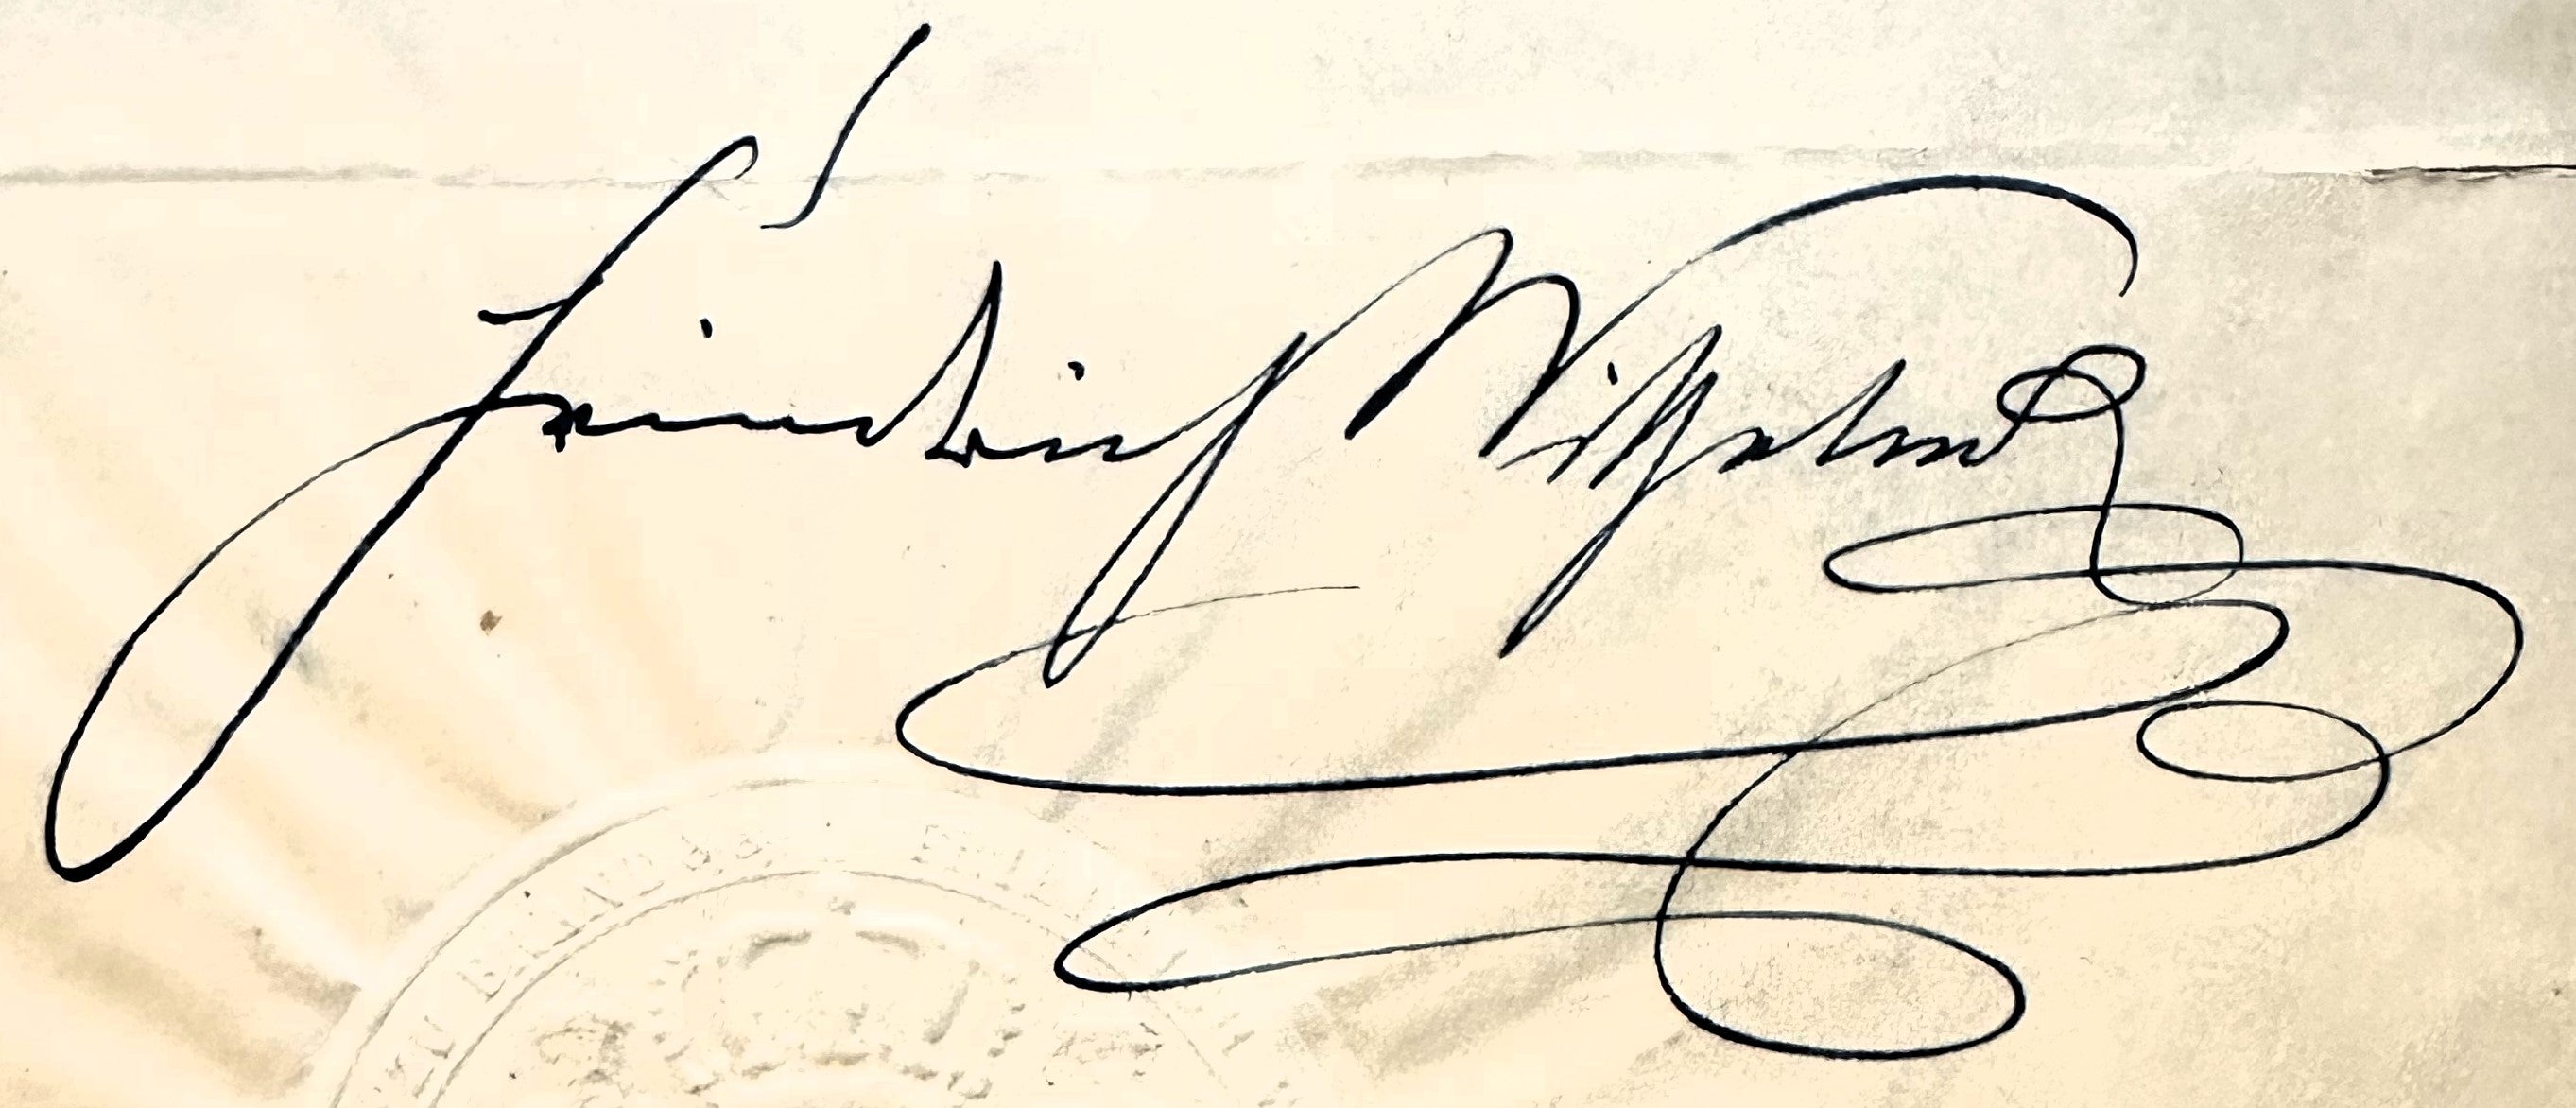 Friedrich Wilhelm